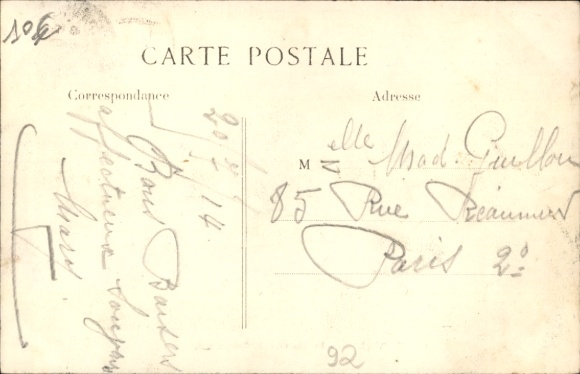 CARTE POSTALE
Correspondance
Adresse
20/2/14
Bons Baisers
affectueux toujours
M Melle Mad. Guillon
85 Rue Réaumur
Paris 2º
92